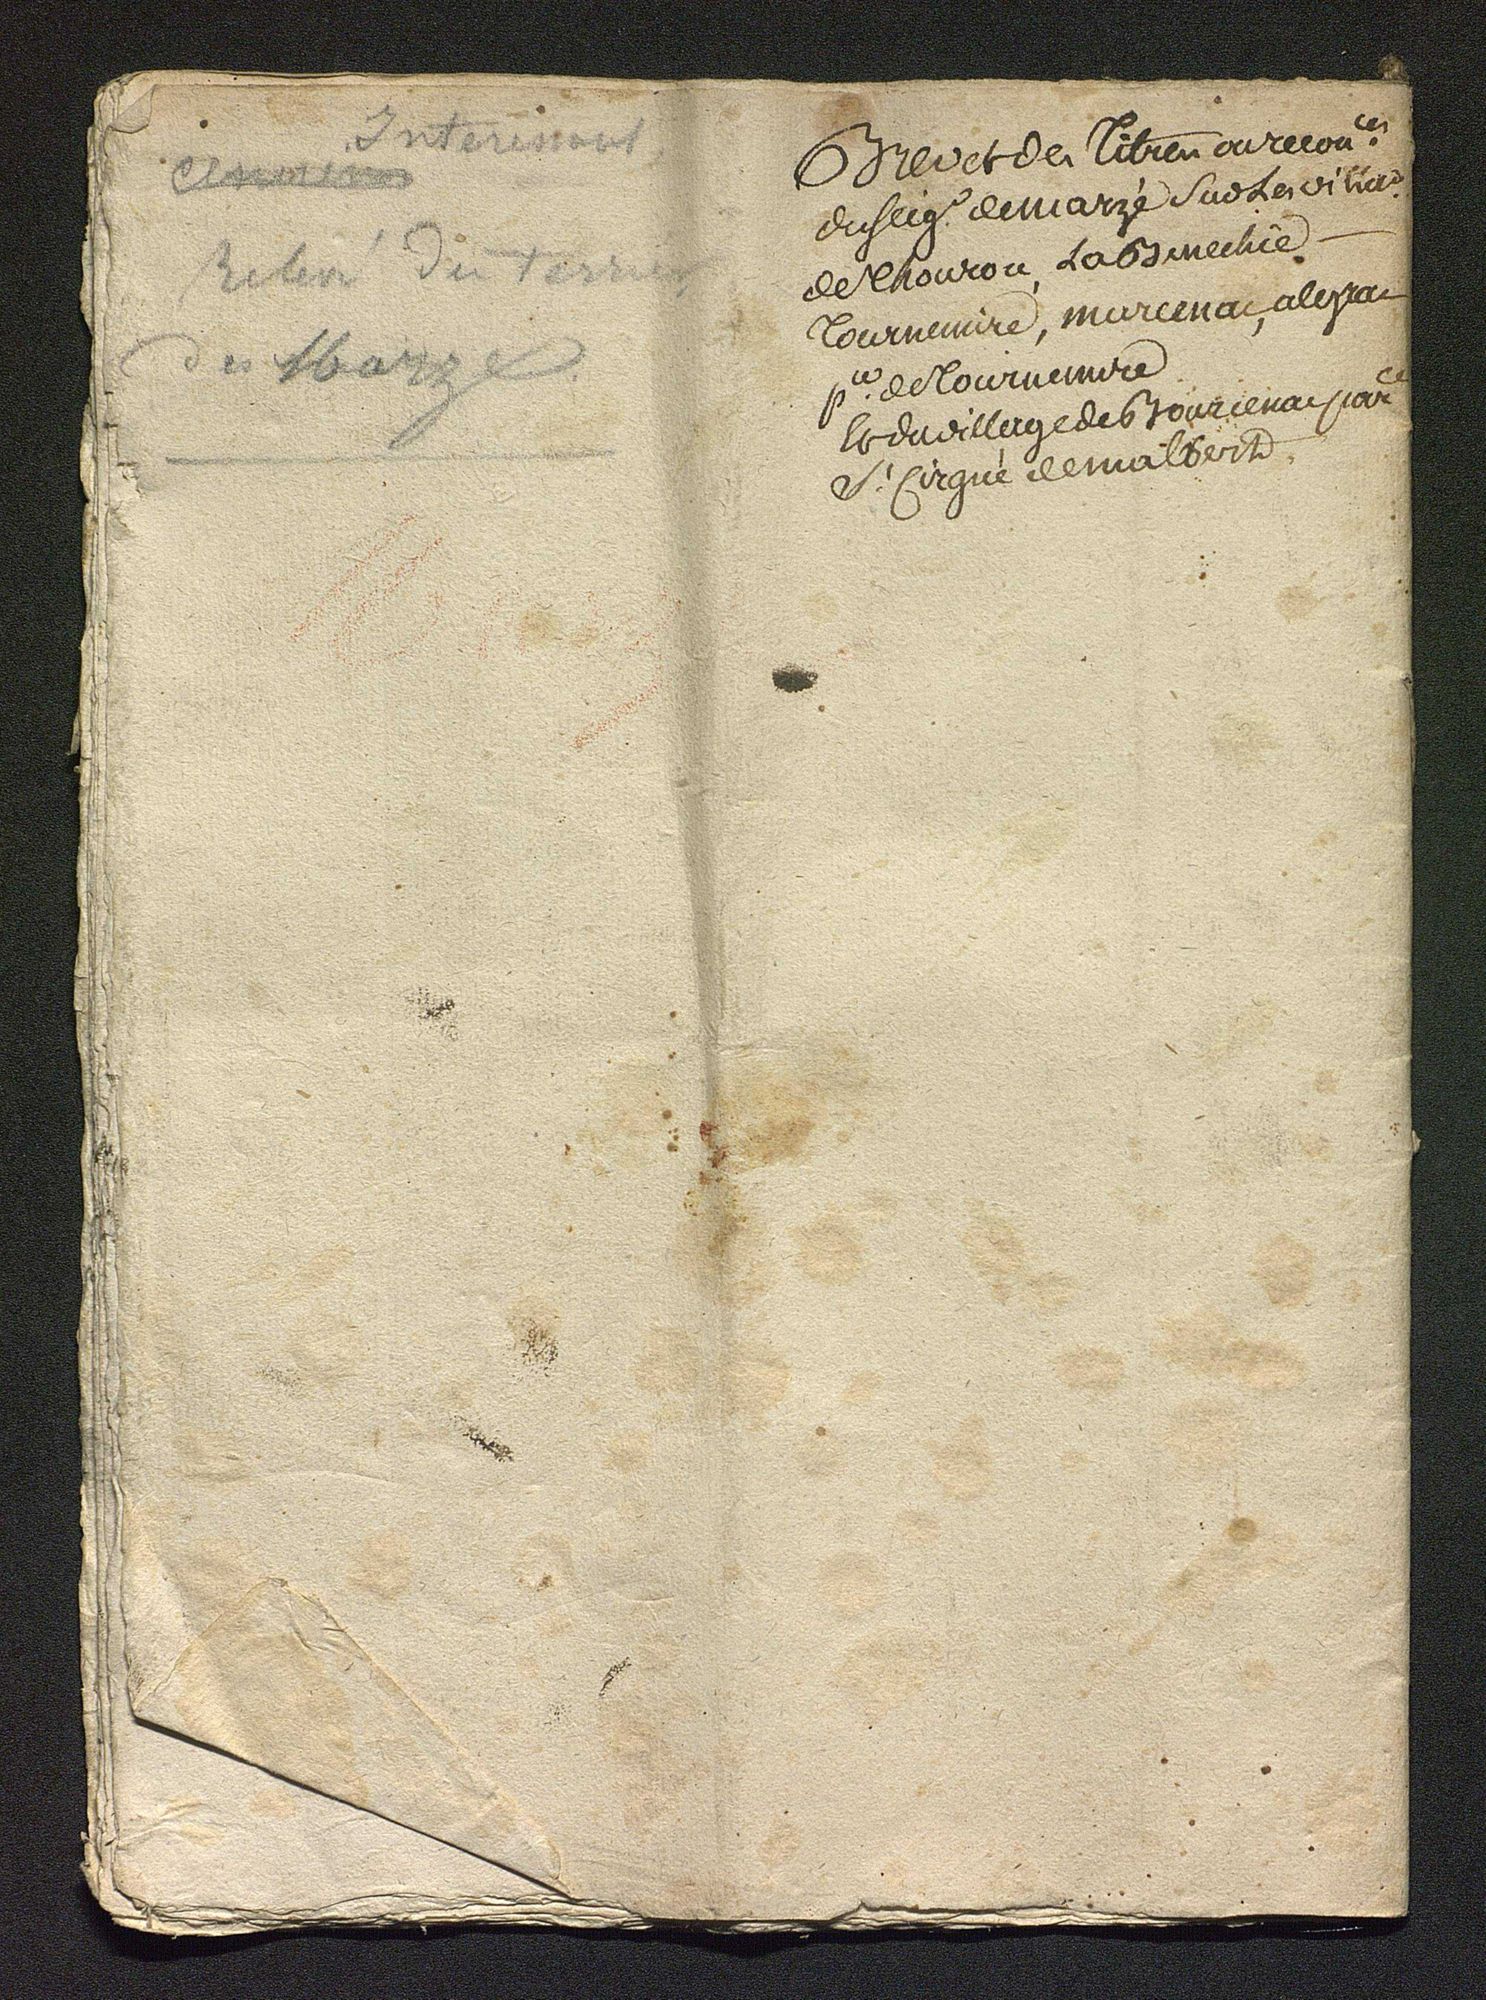 Interessant
Relevé du terrier
de Marzé
Brevet des Titres ou recon.ces
du seigr. de marzé sur Les villa.
de Chourou, La Bmechie
Tournemire, marcenac, aleyrac
p.ce de Tournemire
Et du village de Bourienac par.ce
St. Cirgue de malbert